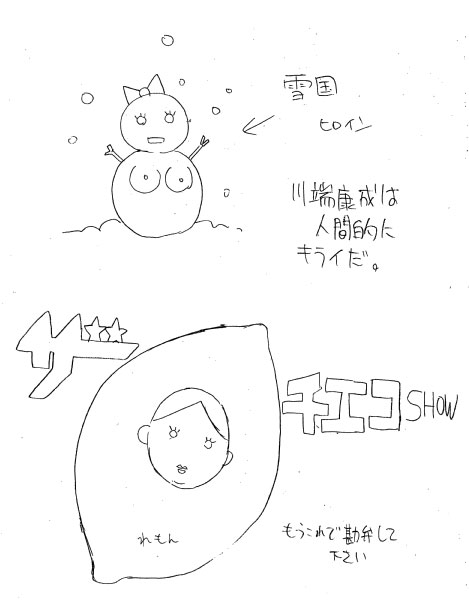 雪国
ヒロイン
川端康成は
人間的に
キライだ。
ザ☆☆
チエコSHOW
れもん
もうこれで勘弁して
下さい